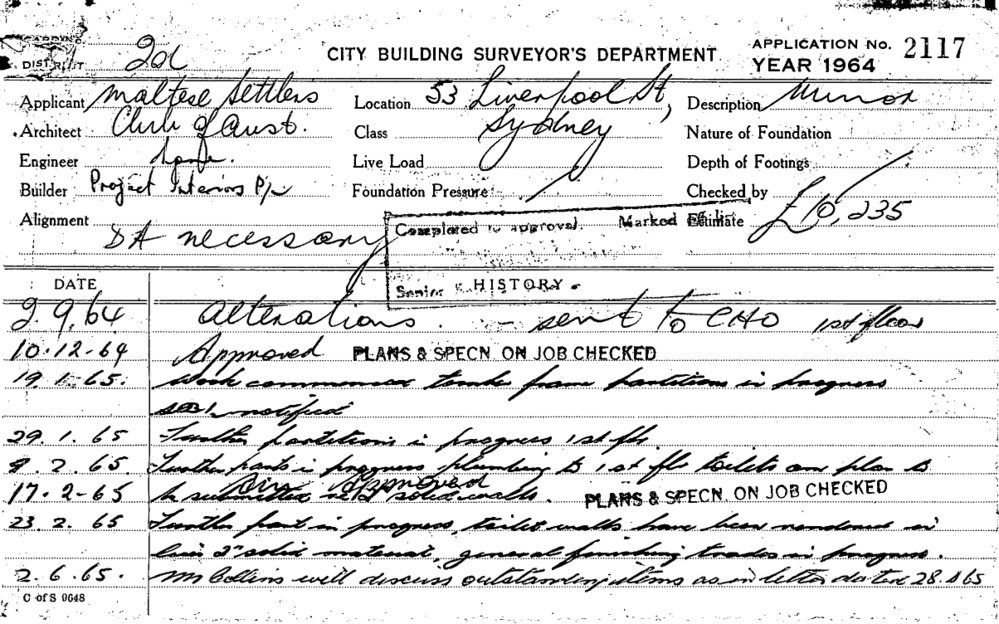 DISTRICT 2d CITY BUILDING SURVEYOR'S DEPARTMENT APPLICATION No. 2117
YEAR 1964
Applicant Maltese Settlers Location 53 Liverpool St, Description Minor
Architect Club of Aust. Class Sydney Nature of Foundation
Engineer Live Load Depth of Footings
Builder Project Interiors P/L Foundation Pressure Checked by
Alignment Completed to approval. Marked off list Estimate £10,235
DA necessary
Senior
DATE HISTORY
2.9.64 Alterations. - sent to CHO 1st floor
10.12.64 Approved PLANS & SPECN. ON JOB CHECKED
19.1.65. Work commenced timber frame partitions in progress
notified
29.1.65 Further partitions in progress 1st flr.
9.2.65. Further parts in progress plumbing to 1st flr toilets am plan to
17.2-65 be submitted solid walls. Approved PLANS & SPECN. ON JOB CHECKED
23.2.65 Further part in progress, toilet walls have been rendered in
lieu 2" solid material, general finishing trades in progress.
2.6.65. Mr Collins will discuss outstanding items as in letter dated 28.5.65
C of S 0048